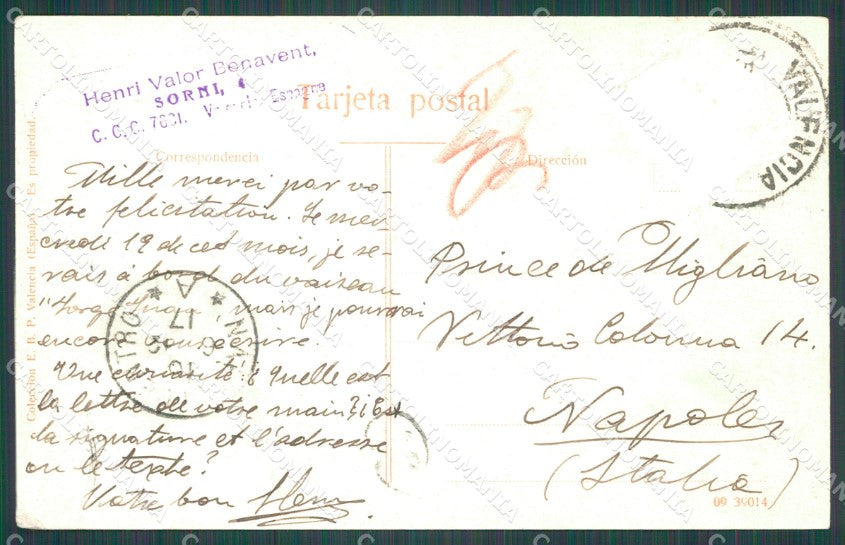 Henri Valor Benavent,
SORNI, 4
C. C. C. 7601. Espagne
Tarjeta postal
Correspondencia
Dirección
Mille merci par vo-
tre felicitation. Le mer-
credi 19 de cet mois, je se-
rais à bord du vaiseau
mais je pourrai
encore vous ecrire.
Une curiosité: Quelle est
la lettre de votre main? ¿Est
la signature et l'adresse
ou le texte?
Votre bon
Prince de Migliano
Vittorio Colonna 14.
Napoles
(Italia)
VALENCIA
Colección E. B. P. Valencia (España). Es propiedad
09 39014
CARTOLINOMANIA